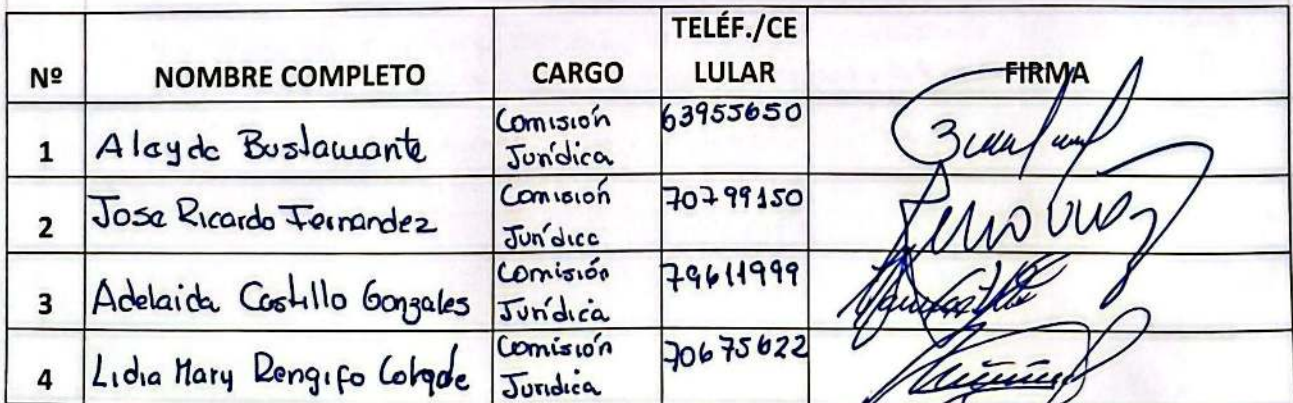 Nº NOMBRE COMPLETO CARGO TELÉF./CE
LULAR FIRMA
1 Alayda Bustamante Comisión
Jurídica 63955650
2 Jose Ricardo Fernandez Comisión
Jurídica 70799150
3 Adelaida Castillo Gonzales Comisión
Jurídica 79611999
4 Lidia Mary Rengifo Comisión
Juridica 70675622